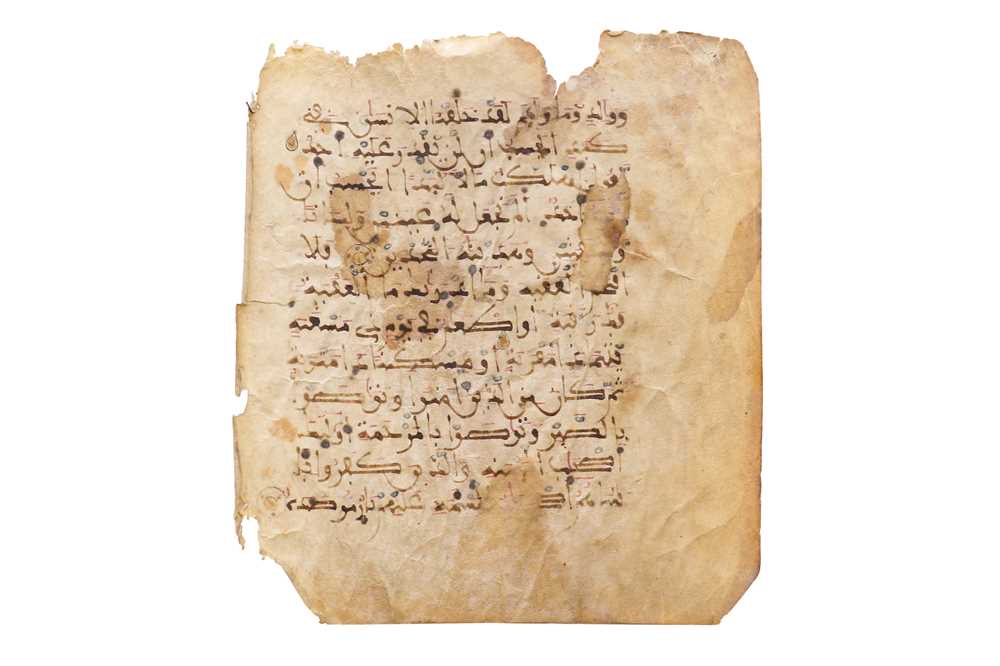 ووالد وما ولد لقد خلقنا الانسن في
كبد ايحسب ان لن يقدر عليه احد
يقول اهلكت مالا لبدا ايحسب ان
احد الم نجعل له عينين ولسانا
وهدينه النجدين فلا
اقتحم العقبة وما ادريك ما العقبة
فك رقبة او اطعم في يوم ذي مسغبة
يتيما ذا مقربة او مسكينا ذا متربة
ثم كان من الذين امنوا وتواصوا
بالصبر وتواصوا بالمرحمة اوليك
اصحب الميمنة والذين كفروا
المشمة عليهم نار موصدة